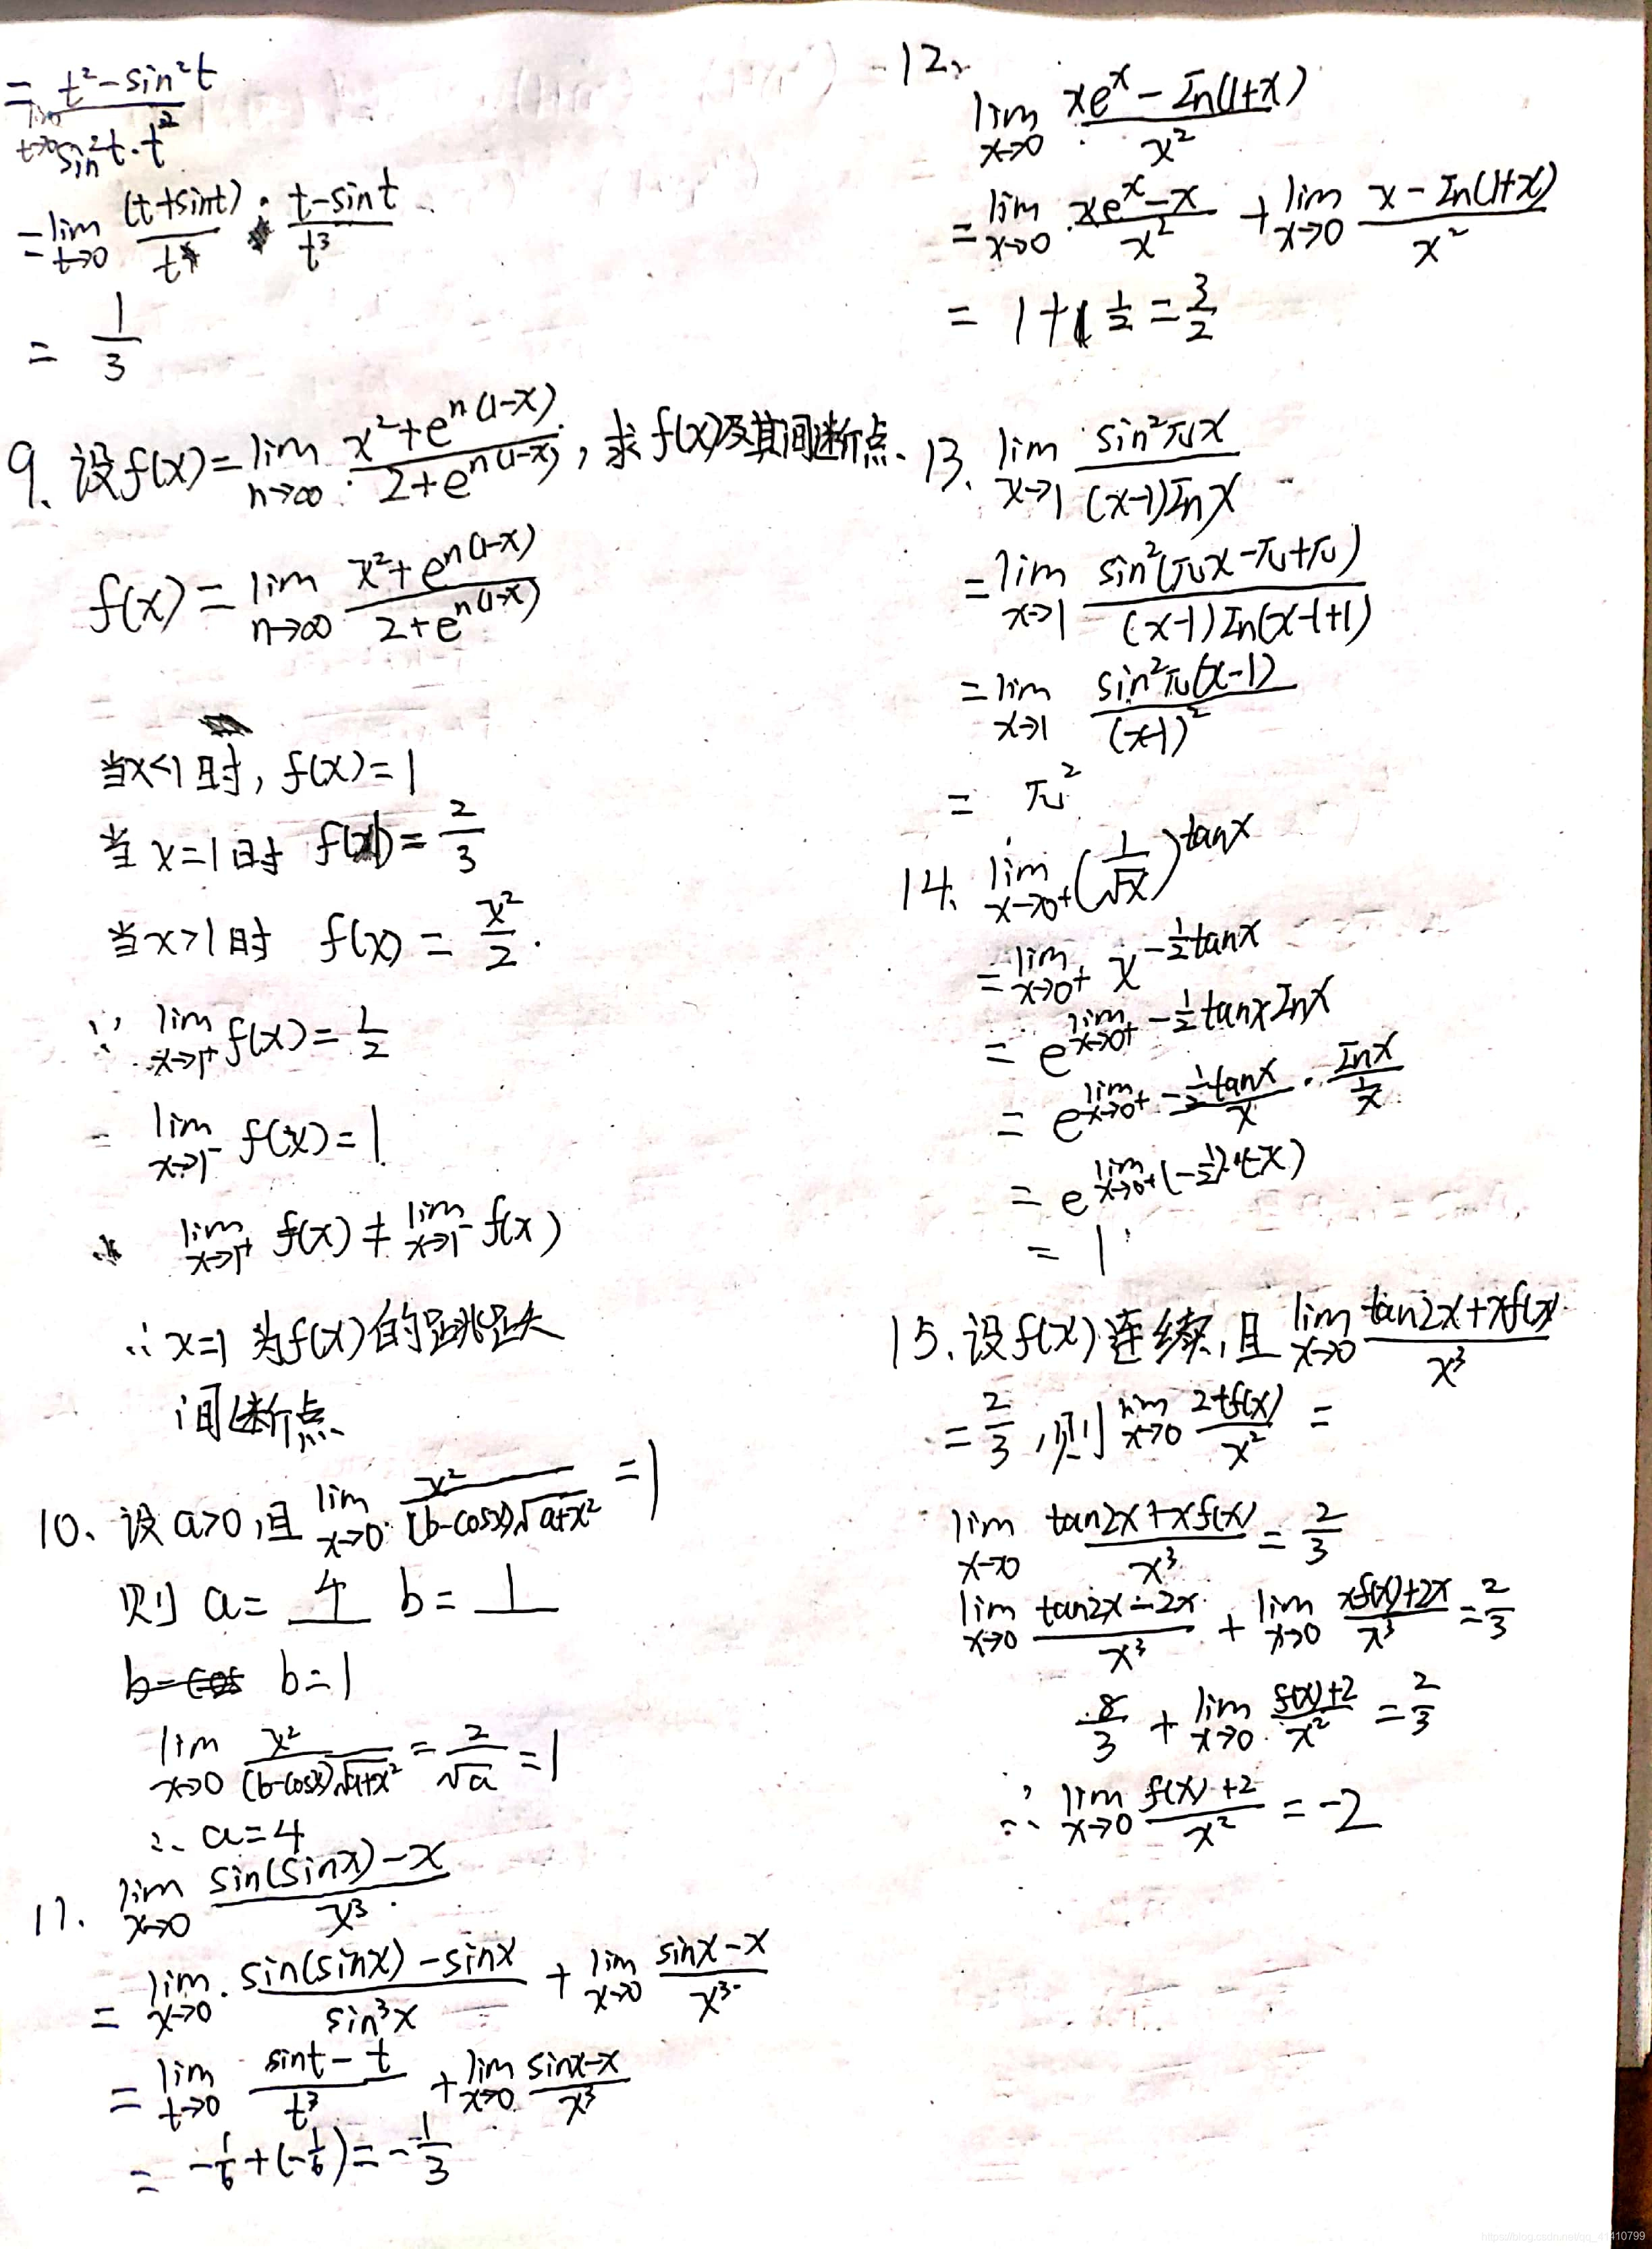 = lim t→0 (t²-sin²t)/(sin²t·t²)
= lim t→0 (t+sint)/t · (t-sint)/t³
= 1/3
9. 设f(x)= lim n→∞ (x²+e^{n(1-x)})/(2+e^{n(1-x)}), 求f(x)及其间断点.
f(x) = lim n→∞ (x²+e^{n(1-x)})/(2+e^{n(1-x)})
当x<1时, f(x)=1
当x=1时 f(1)= 2/3
当x>1时 f(x) = x²/2.
∵ lim x→1⁺ f(x)= 1/2
lim x→1⁻ f(x)=1
lim x→1⁺ f(x) ≠ lim x→1⁻ f(x)
∴ x=1 为f(x)的跳跃
间断点
10、设a>0,且 lim x→0 x²/((b-cosx)√(a+x²)) =1
则 a= 4 b= 1
b=1
lim x→0 x²/((b-cosx)√(a+x²)) = 2/√a =1
∴ a=4
11. lim x→0 (sin(sinx)-x)/x³
= lim x→0 (sin(sinx)-sinx)/sin³x + lim x→0 (sinx-x)/x³
= lim t→0 (sint-t)/t³ + lim x→0 (sinx-x)/x³
= -1/6+(-1/6)= -1/3
12、
lim x→0 (xeˣ-In(1+x))/x²
= lim x→0 (xeˣ-x)/x² + lim x→0 (x-In(1+x))/x²
= 1+ 1/2 = 3/2
13、 lim x→1 sin²πx/((x-1)Inx)
= lim x→1 sin²(πx-π+π)/((x-1)In(x-1+1))
= lim x→1 sin²π(x-1)/(x-1)²
= π²
14、 lim x→0⁺ (1/√x)^{tanx}
= lim x→0⁺ x^{-1/2 tanx}
= e^{lim x→0⁺ -1/2 tanx Inx}
= e^{lim x→0⁺ -1/2 tanx/x · Inx/(1/x)}
= e^{lim x→0⁺ (-1/2)·(-x)}
= 1
15、设f(x)连续,且 lim x→0 (tan2x+xf(x))/x³
= 2/3 ,则 lim x→0 (2+f(x))/x² =
lim x→0 (tan2x+xf(x))/x³ = 2/3
lim x→0 (tan2x-2x)/x³ + lim x→0 (xf(x)+2x)/x³ = 2/3
8/3 + lim x→0 (f(x)+2)/x² = 2/3
∴ lim x→0 (f(x)+2)/x² = -2